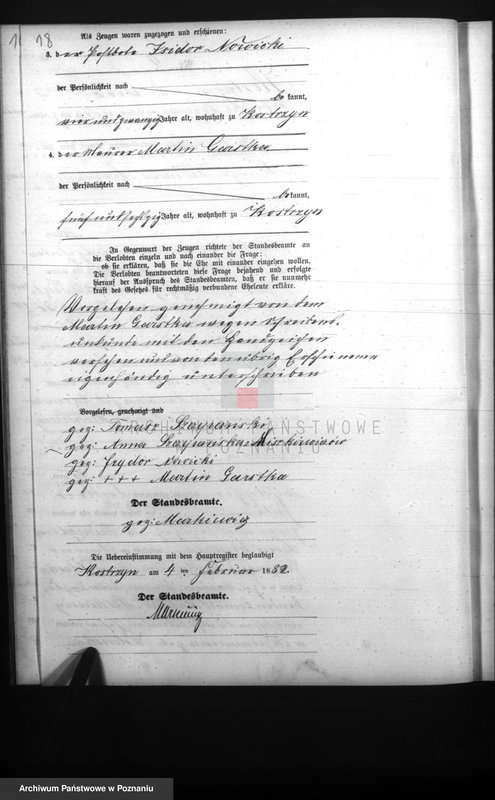 18
Als Zeugen waren zugezogen und erschienen:
3. der Postbote Isidor Nowicki
der Persönlichkeit nach
be kannt,
vierundzwanzig Jahre alt, wohnhaft zu Kostrzyn
4. der Maurer Martin Garstka
der Persönlichkeit nach
be kannt,
fünfundsechzig Jahre alt, wohnhaft zu Kostrzyn
In Gegenwart der Zeugen richtete der Standesbeamte an
die Verlobten einzeln und nach einander die Frage:
ob sie erklären, daß sie die Ehe mit einander eingehen wollen.
Die Verlobten beantworteten diese Frage bejahend und erfolgte
hierauf der Ausspruch des Standesbeamten, daß er sie nunmehr
kraft des Gesetzes für rechtmäßig verbundene Eheleute erkläre.
Vorgelesen genehmigt von dem
Martin Garstka wegen Schreibens-
unkunde mit den Handzeichen
versehen und von den übrig Erschienenen
eigenhändig unterschrieben
Vorgelesen, genehmigt und
gez: Tomasz
gez: Anna
gez: Izydor Nowicki
gez: +++ Martin Garstka
Der Standesbeamte.
gez: Markiewicz
Die Uebereinstimmung mit dem Hauptregister beglaubigt
Kostrzyn am 4 ten Februar 188
Der Standesbeamte.
ARCHIWUM PAŃSTWOWE
W POZNANIU
Archiwum Państwowe w Poznaniu